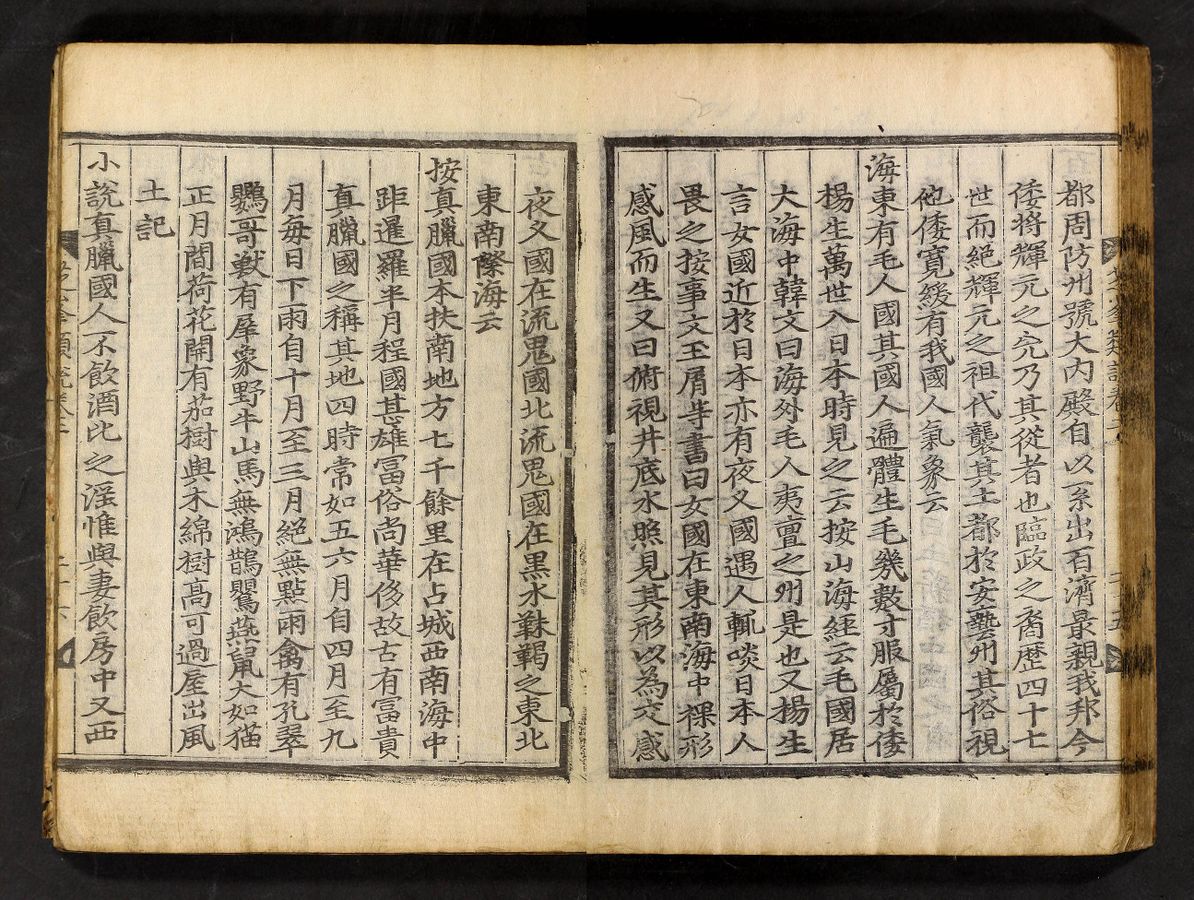 都周防州號大內殿自以系出百濟最親我邦今
倭將輝元之先乃其從者也臨政之裔歷四十七
世而絕輝元之祖代襲其土都於安藝州其俗視
他倭寬緩有我國人氣象云
海東有毛人國其國人遍體生毛幾數寸服屬於倭
楊生萬世入日本時見之云按山海經云毛國居
大海中韓文曰海外毛人夷亶之州是也又楊生
言女國近於日本亦有夜叉國遇人輒啖日本人
畏之按事文玉屑等書曰女國在東南海中裸形
感風而生又曰俯視井底水照見其形以為交感
夜叉國在流鬼國北流鬼國在黑水靺鞨之東北
東南際海云
按真臘國本扶南地方七千餘里在占城西南海中
距暹羅半月程國甚雄富俗尚華侈故古有富貴
真臘國之稱其地四時常如五六月自四月至九
月每日下雨自十月至三月絕無點雨禽有孔翠
鸚哥獸有犀象野牛山馬無鴻鵲鸎燕鼠大如猫
正月間荷花開有茄樹與木綿樹高可過屋出風
土記
小說真臘國人不飲酒比之淫惟與妻飲房中又西